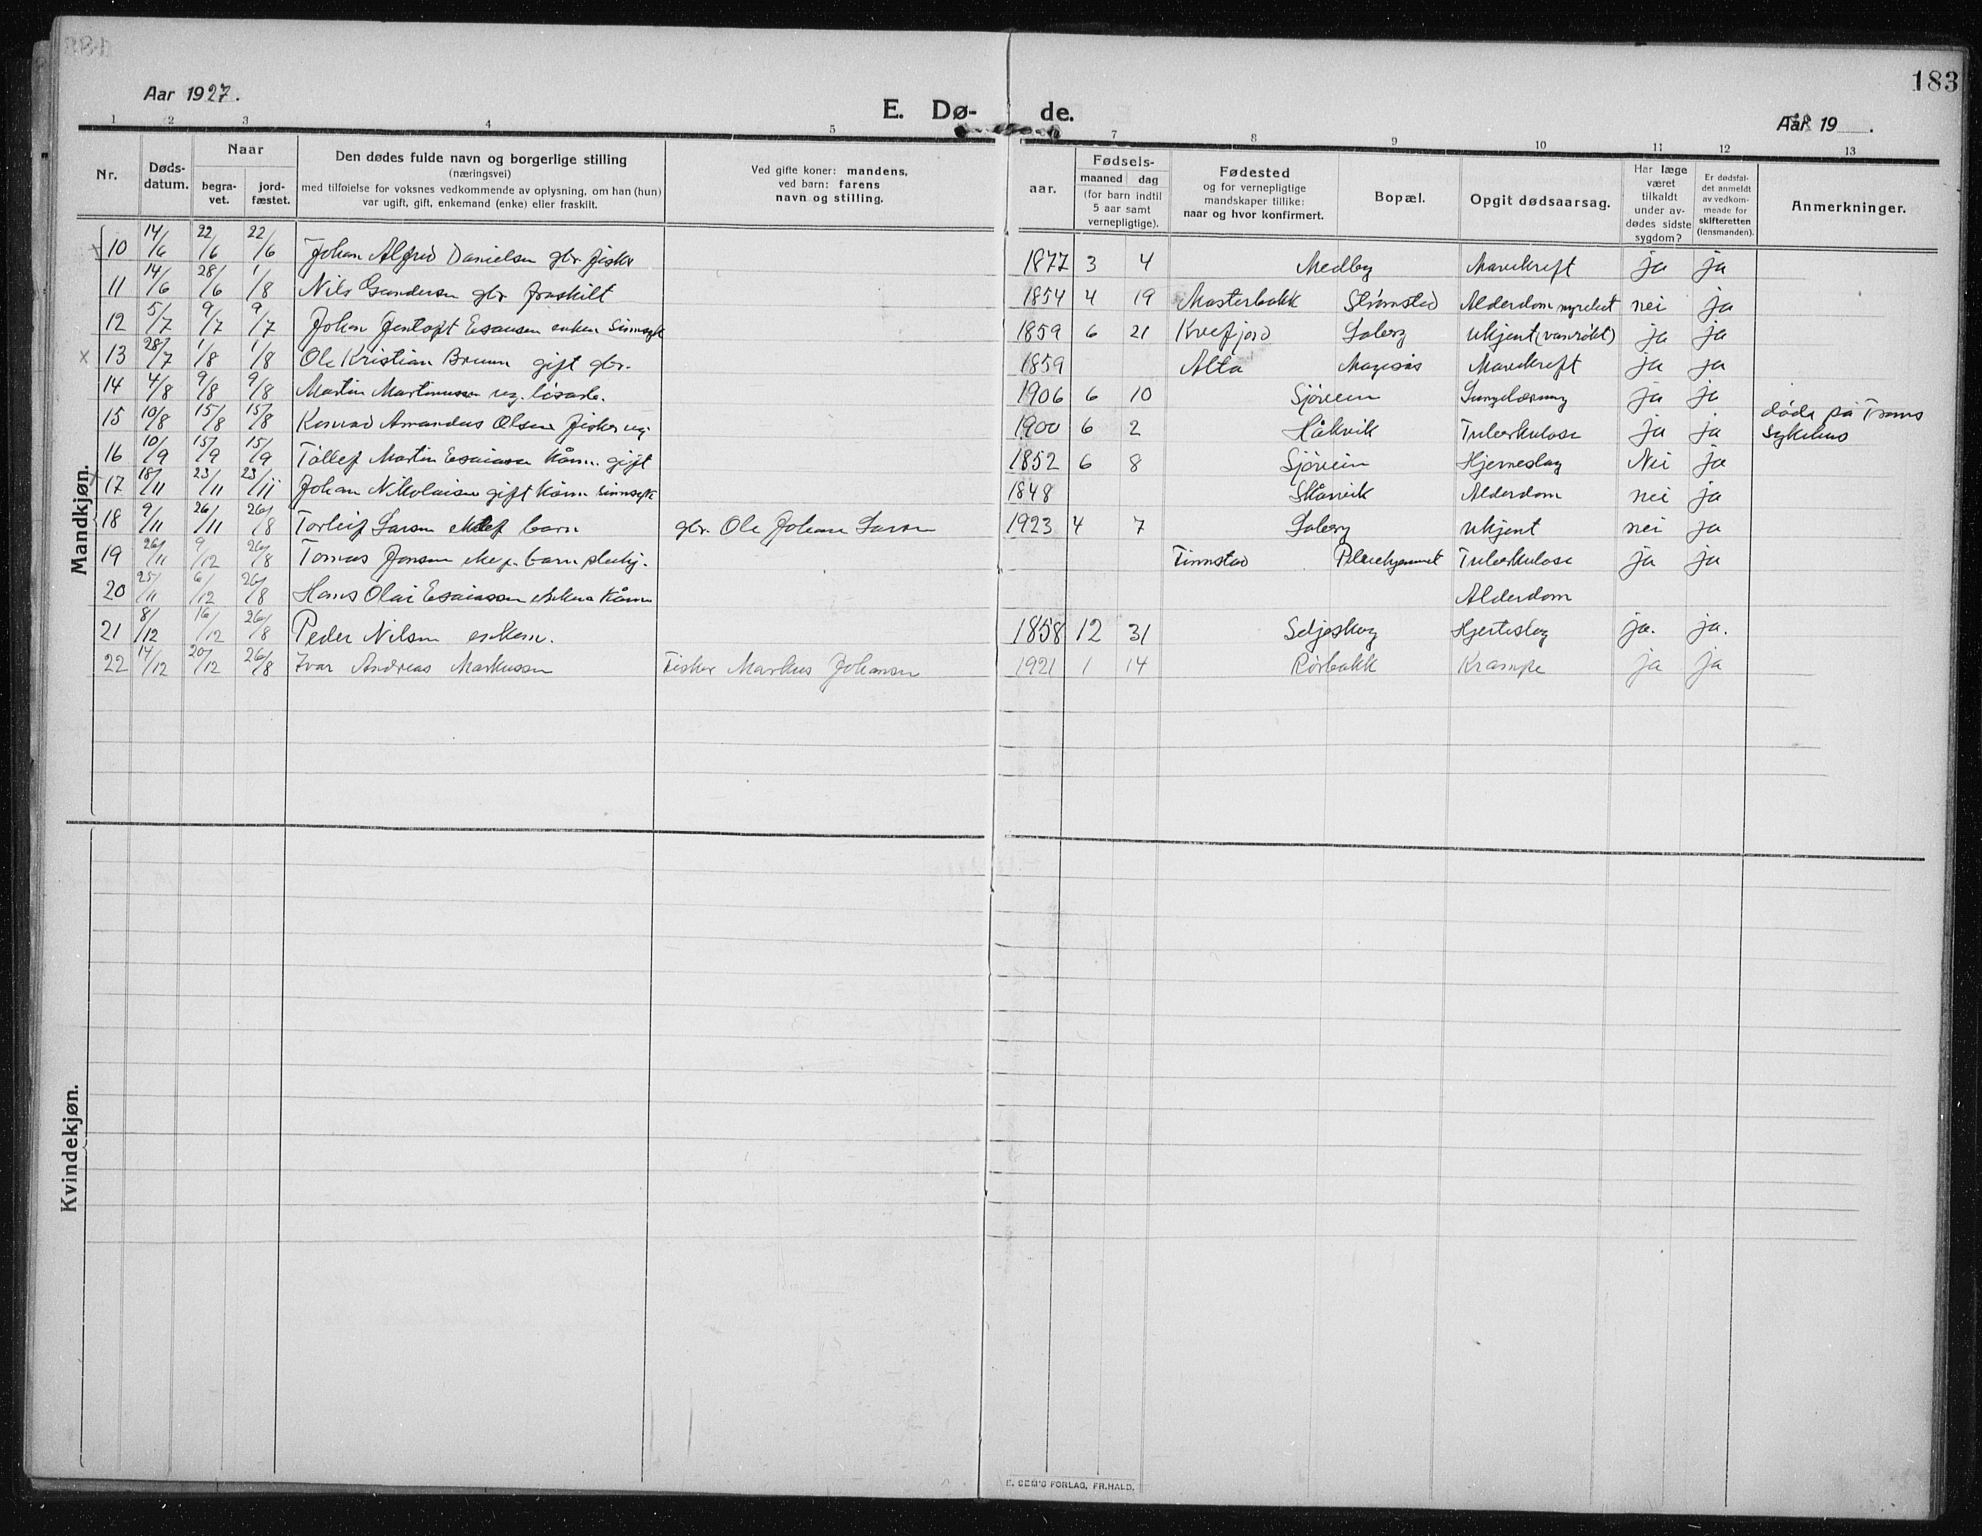 183
Aar 1927.
E. Dø-
de.
Aar 19 .
1 2 3 4 5 7 8 9 10 11 12 13
Nr.
Døds-
datum.
Naar
begra-
vet.
jord-
fæstet.
Den dødes fulde navn og borgerlige stilling
(næringsvei)
med tilføielse for voksnes vedkommende av oplysning, om han (hun)
var ugift, gift, enkemand (enke) eller fraskilt.
Ved gifte koner: mandens,
ved barn: farens
navn og stilling.
Fødsels-
aar.
maaned dag
(for barn indtil
5 aar samt
vernepligtige).
Fødested
og for vernepligtige
mandskaper tillike:
naar og hvor konfirmert.
Bopæl.
Opgit dødsaarsag.
Har læge
været
tilkaldt
under av-
dødes sidste
sygdom?
Er dødsfal-
det anmeldt
av vedkom-
mende for
skifteretten
(lensmanden).
Anmerkninger.
Mandkjøn.
10 14/6 22/6 22/6 Johan Alfred Danielsen gbr. fisker 1877 3 4 Medby Mavekreft ja ja
11 14/6 28/6 1/8 Nils Gundersen gbr fraskilt 1854 4 19 Masterbakk Strømstad Alderdom nei ja
12 5/7 9/7 9/7 Johan Jentoft Esaiasen 1859 6 21 Kvefjord Laberg Ukjent ja ja
x 13 28/7 1/8 1/8 Ole Kristian Bruun gift gbr. 1859 Alta Mavekreft ja ja
14 4/8 9/8 9/8 Martin Martinussen ug. løsarb. 1906 6 10 Sjøveien ja ja
15 10/8 15/8 15/8 Konrad Amandus Olsen fisker ug. 1900 6 2 Håkvik Tuberkulose ja ja døde på Troms
Sykehus
16 10/9 15/9 15/9 Tollef Martin Esaiassen kårm. gift 1852 6 8 Sjøveien Hjerneslag Nei ja
17 18/11 23/11 23/11 Johan Nikolaisen gift kårm sinnsyk 1848 Skårvik Alderdom nei ja
18 9/11 26/11 26/8 Torleif Larsen barn gbr. Ole Johan Larsen 1923 4 7 Laberg Ukjent nei ja
19 26/11 9/12 26/8 Tomas Jensen barn Finnstad Pleiehjemmet Tuberkulose ja ja
20 25/11 6/12 26/8 Hans Olai Esaiassen Alderdom
21 8/12 16/12 26/8 Peder Nilsen enkem. 1858 12 31 Seljeskog Hjerteslag ja. ja.
22 14/12 20/12 26/8 Ivar Andreas Markussen Fisker Markus Johansen 1921 1 14 Rørbakk Krampe ja ja
Kvindekjøn.
E. SEM'S FORLAG, FR.HALD.